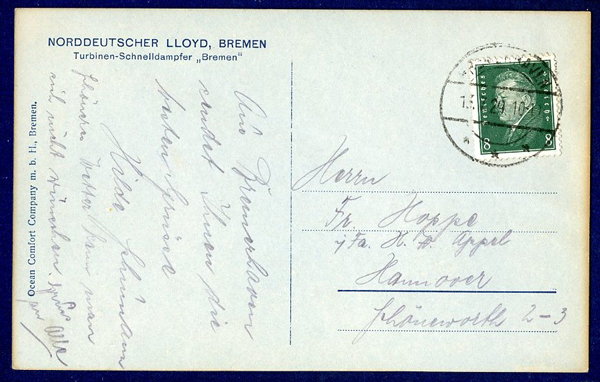 NORDDEUTSCHER LLOYD, BREMEN
Turbinen-Schnelldampfer „Bremen"
Ocean Comfort Company m. b. H., Bremen.
Aus Bremerhaven
sendet Ihnen die
besten Grüsse
Hilda
Wetter kann man
sich nicht wünschen. Gruß
8 8
Herrn
Fr. Hoppe
Fa. H. W. Appel
Hannover
2-3